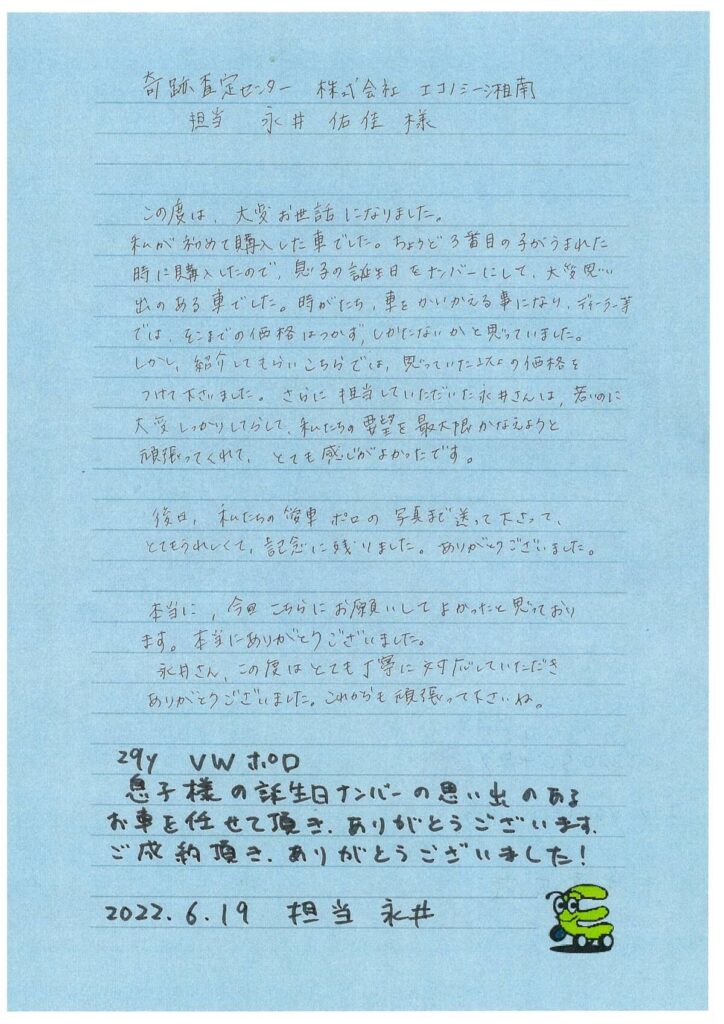 奇跡査定センター 株式会社 エコノミー湘南
担当 永井 佑佳 様
この度は、大変お世話になりました。
私が初めて購入した車でした。ちょうど3番目の子がうまれた
時に購入したので、息子の誕生日をナンバーにして、大変思い
出のある車でした。時がたち、車をかいかえる事になり、ディーラー等
では、そこまでの価格はつかず、しかたないかと思っていました。
しかし、紹介してもらいこちらでは、思っていた以上の価格を
つけて下さいました。さらに担当していただいた永井さんは、若いのに
大変しっかりしてらして、私たちの要望を最大限かなえようと
頑張ってくれて、とても感じがよかったです。
後日、私たちの愛車ポロの写真まで送って下さって、
とてもうれしくて、記念に残りました。ありがとうございました。
本当に、今回こちらにお願いしてよかったと思っており
ます。本当にありがとうございました。
永井さん、この度はとても丁寧に対応していただき
ありがとうございました。これからも頑張って下さいね。
29y VWポロ
息子様の誕生日ナンバーの思い出のある
お車を任せて頂き、ありがとうございます。
ご成約頂き、ありがとうございました!
2022.6.19 担当 永井